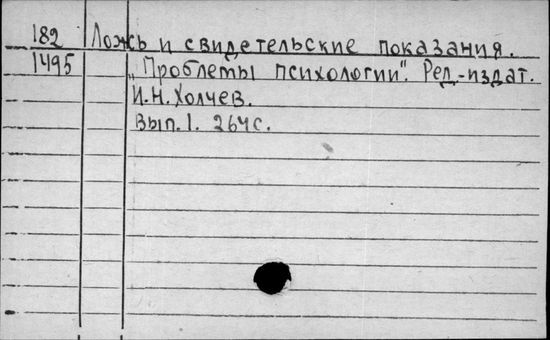 182 Ложь и свидетельские показания.
1495 „Проблемы психологии". Ред.-издат.
И.Н.Холчев.
Вып.1. 264с.